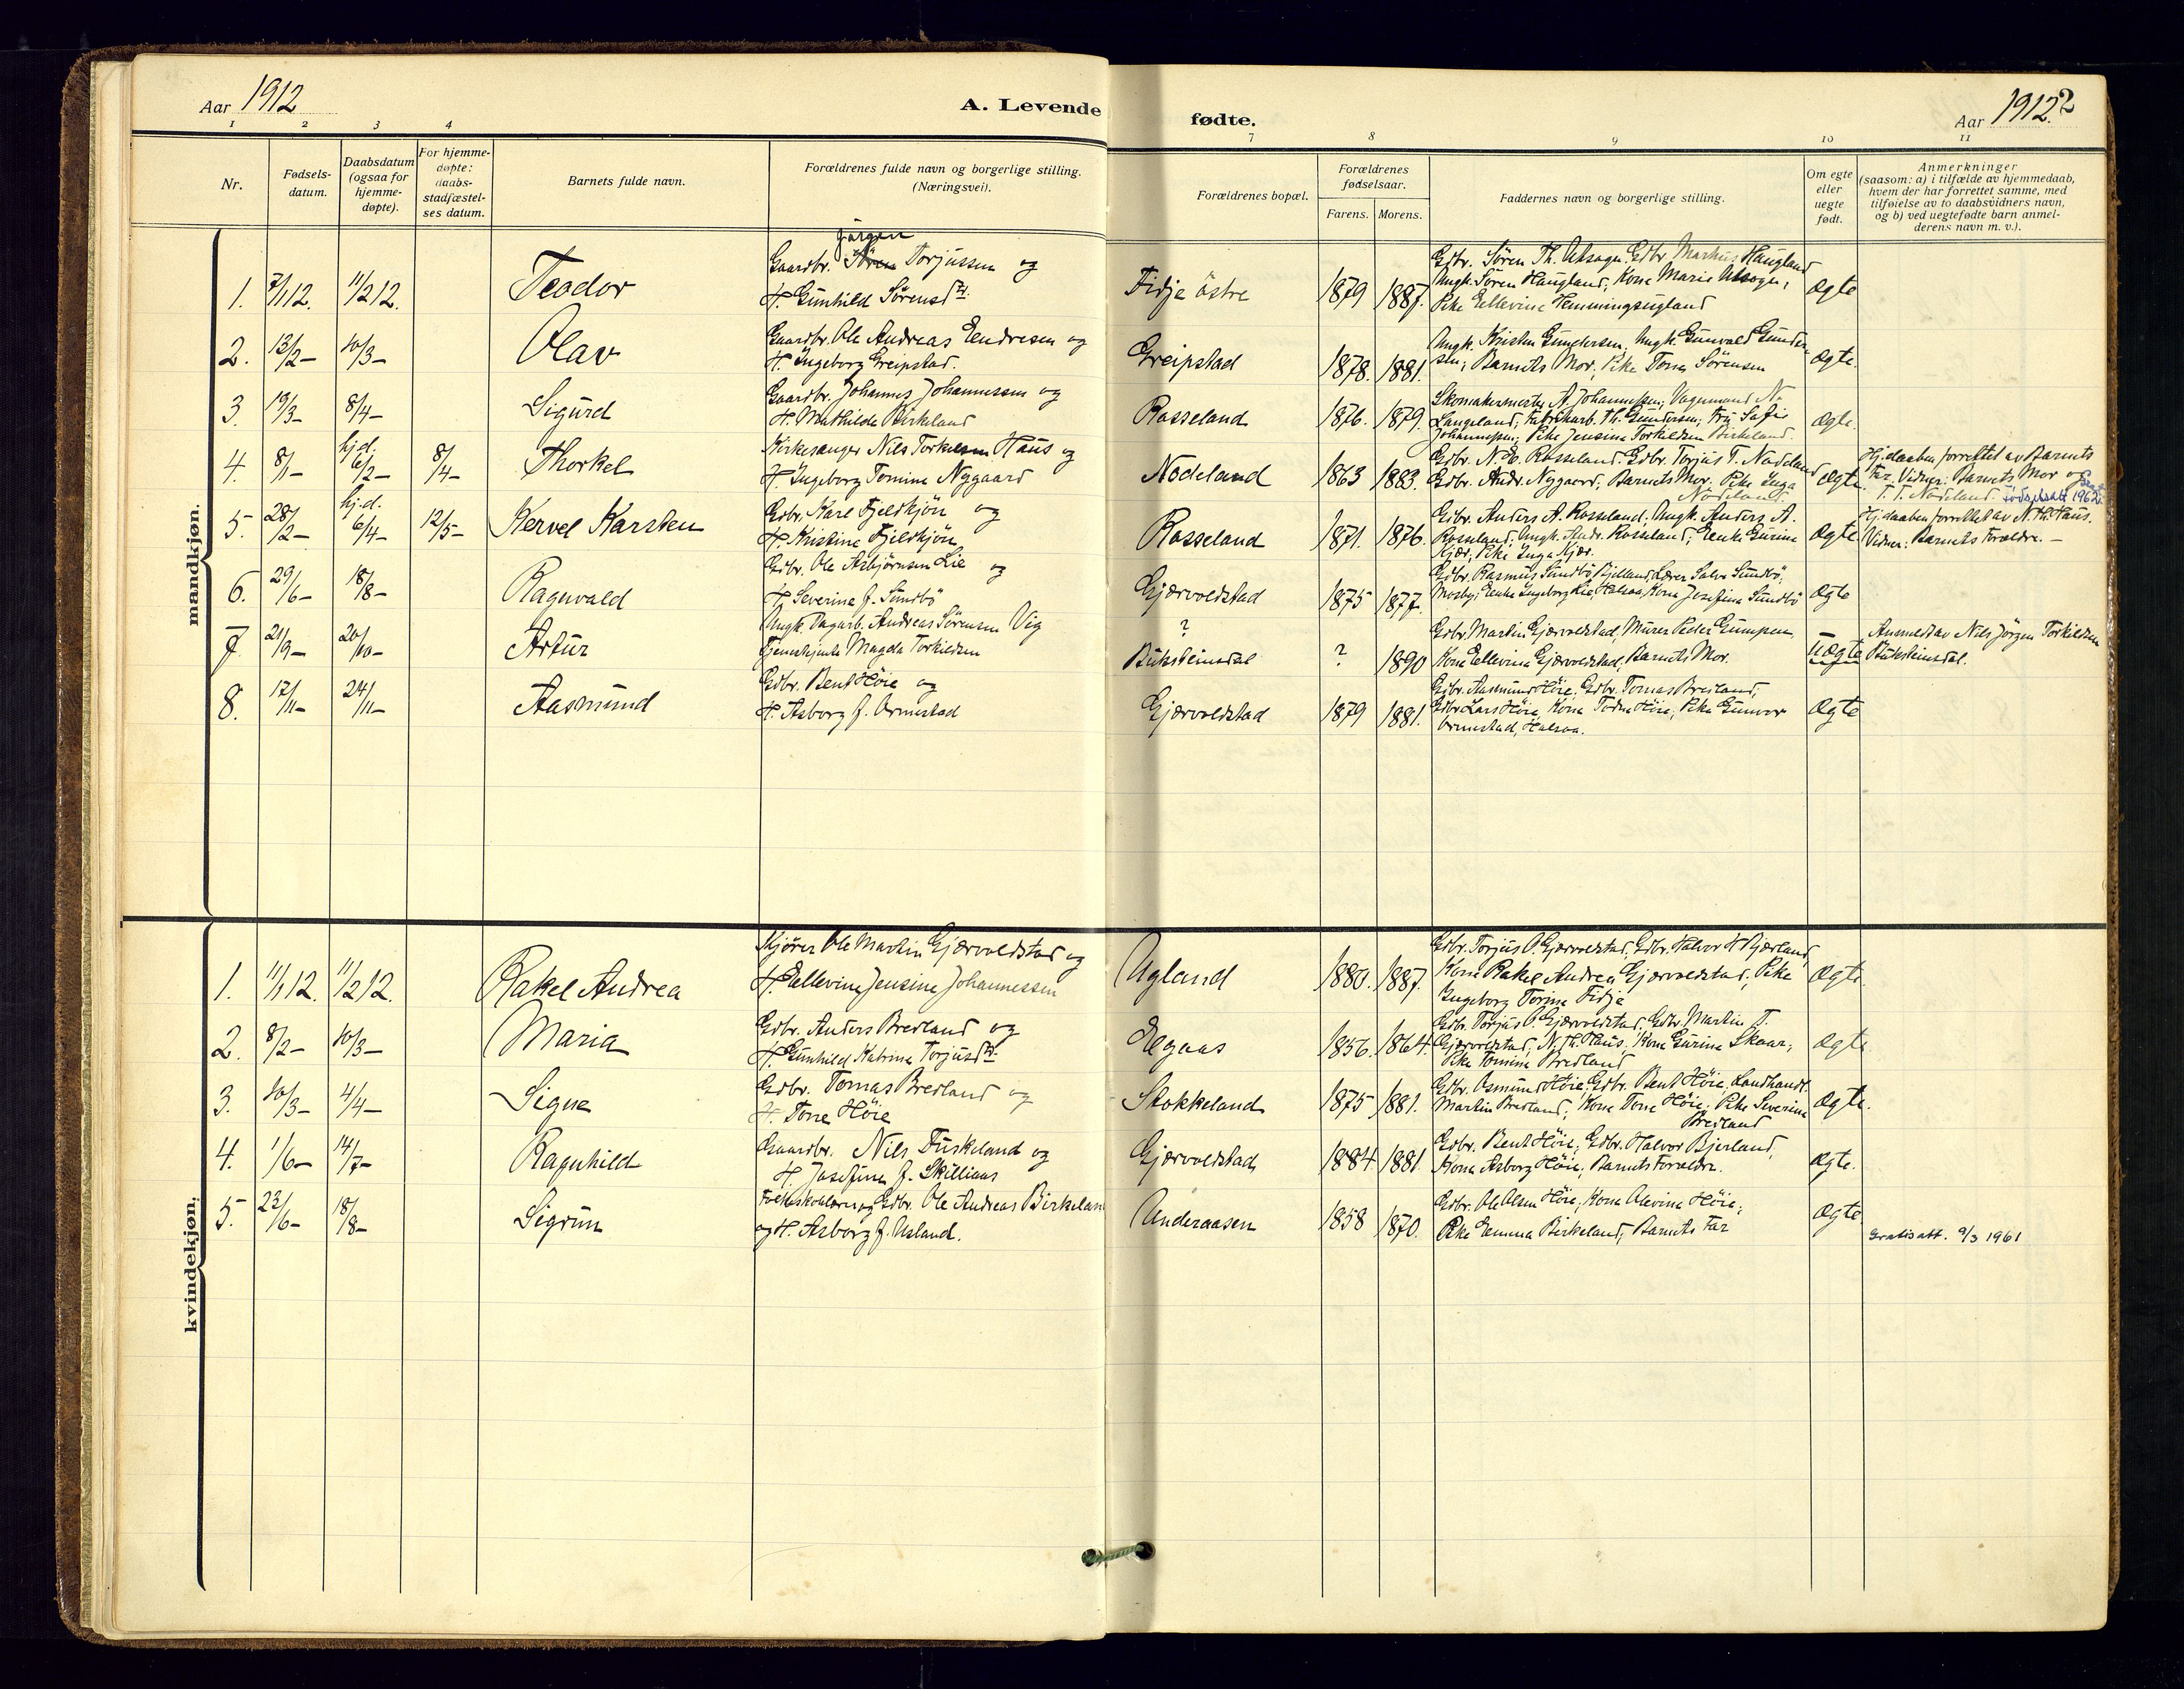 Aar 1912
A. Levende
fødte.
Aar 1912.
2
1
2
3
4
7
8
9
10
11
Nr.
Fødsels-
datum.
Daabsdatum
(ogsaa for
hjemme-
døpte).
For hjemme-
døpte:
daabs-
stadfæstel-
ses datum.
Barnets fulde navn.
Forældrenes fulde navn og borgerlige stilling.
(Næringsvei).
Forældrenes bopæl.
Forældrenes
fødselsaar.
Farens.
Morens.
Faddernes navn og borgerlige stilling.
Om egte
eller
uegte
født.
Anmerkninger
(saasom: a) i tilfælde av hjemmedaab,
hvem der har forrettet samme, med
tilføielse av to daabsvidners navn,
og b) ved uegtefødte barn anmel-
derens navn m. v.).
mandkjøn.
1. 7/1 12. 11/2 12. Teodor
Jörgen
Gaardbr. Sören Torjussen og
H. Gunhild Sørensdtr.
Fidje östre 1879 1887.
Gdbr. Søren Th. Gdbr. Markus Haugland
Ungk. Sören Haugland, Kona Marie
Pike Ellevine Hemmingsugland
Ægte
2. 13/2 – 10/3 – Olav
Gaardbr. Ole Andreas Endresen og
H. Ingeborg Greipstad.
Greipstad 1878. 1881.
Ungk. Kristen Gundersen, Ungk. Gunvald Gunder-
sen; Barnets Mor, Pike Tone Sørensen
Ægte.
3. 19/3 – 8/4 – Sigurd
Gaardbr. Johannes Johannessen og
H. Mathilde Birkeland
Rosseland 1876. 1879.
Skomakermester A. Johannessen; Vognmand N.
Langeland; Fabrikarb. Th. Gundersen, Fru Sofie
Johannessen; Pike Jensine Torkildsen Birkeland.
Ægte.
4. 8/1 – hj.d. 6/2 – 8/4 – Thorkel
Kirkesanger Nils Torkelsen Haus og
H. Ingeborg Tomine Nygaard
Nodeland 1863 1883.
Gdbr. N. O. Rosseland. Gdbr. Torjus T. Nodeland
Gdbr. Andr. Nygaard; Barnets Mor. Pike Inga
Nodeland.
Ægte.
Hj.daaben forrettet av Barnets
Far. Vidner: Barnets Mor og
T. T. Nodeland. Fødselsatt 1962
5. 28/2 – hj.d. 6/4 – 12/5 – Kervel Karsten
Gdbr. Karl Fjeldkjön og
H. Kristine Fjeldkjön
Rosseland 1871. 1876.
Gdbr. Anders A. Rosseland; Ungk. Anders A.
Rosseland; Ungk. Andr. Rosseland; Enke Gurine
Kjær; Pike Inga Kjær.
Ægte
Hj.daaben forrettet av N. Th. Haus.
Vidner: Barnets Forældre. –
6. 29/6 – 18/8 – Ragnvald
Gdbr. Ole Asbjørnsen Lie og
H. Severine f. Sundbö
Gjærvoldstad 1875 1877.
Gdbr. Rasmus Sundbö, Lærer Salve Sundbö,
Mosby; Enke Ingeborg Lie, Halsaa, Kona Josefine Sundbö
Ægte
7. 21/9 – 20/10 – Artur
Ungk. Vagarb. Andreas Sörensen Vig
Tjenestejente Magda Torkildsen
?
Buksteinsdal ? 1890
Gdbr. Martin Gjærvoldstad, Murer Peder Gumpen,
Kona Ellevine Gjærvoldstad, Barnets Mor.
Uægte
Anmeldt av Nils Jörgen Torkildsen
Buksteinsdal.
8. 17/11 – 24/11 – Aasmund
Gdbr. Bent Höie og
H. Asborg f. Ormestad
Gjærvoldstad 1879 1881.
Gdbr. Aasmund Höie; Gdbr. Tomas Breiland;
Gdbr. Lars Höie, Kona Höie; Pike Gunvor
Ormestad, Halsaa.
Ægte
kvindekjøn.
1. 11/1 12. 11/2 12. Rakel Andrea
Kjører Ole Martin Gjærvoldstad og
H. Ellevine Jensine Johannessen
Ugland 1880. 1887.
Gdbr. Torjus O. Gjærvoldstad, Gdbr. Halvor H. Bjærland,
Kona Rakel Andrea Gjærvoldstad; Pike
Ingeborg Torine Fidje
Ægte.
2. 8/2 – 10/3 – Maria
Gdbr. Anders Bredland og
H. Gunhild Katrine Torjusdtr.
Egaas 1856. 1864.
Gdbr. Torjus O. Gjærvoldstad; Gdbr. Martin T.
Gjærvoldstad, N. Th. Haus; Kona Gurine Skaar;
Pike Tomine Bredland
Ægte.
3. 10/3 – 4/4 – Signe
Gdbr. Tomas Bredland og
H. Tone Höie
Stokkeland 1875 1881.
Gdbr. Osmund Höie; Gdbr. Bent Höie, Landhandl.
Martin Bredland; Kona Tone Höie; Pike Severine
Bredland
Ægte.
4. 1/6 – 14/7 – Ragnhild
Gaardbr. Nils Fuskeland og
H. Josefine f. Skillions
Gjærvoldstad 1884 1881
Gdbr. Bent Höie; Gdbr. Halvor Bjerland,
Kona Asborg Höie, Barnets Forældre.
Ægte.
5. 23/6 – 18/8 – Sigrun
Folkeskolelærer og Gdbr. Ole Andreas Birkeland
og H. Asborg f. Usland.
Underaasen 1858 1870.
Gdbr. Ole Olsen Höie; Kona Olevine Höie;
Pike Emma Birkeland; Barnets Far
Ægte
Gratisatt. 9/3 1961